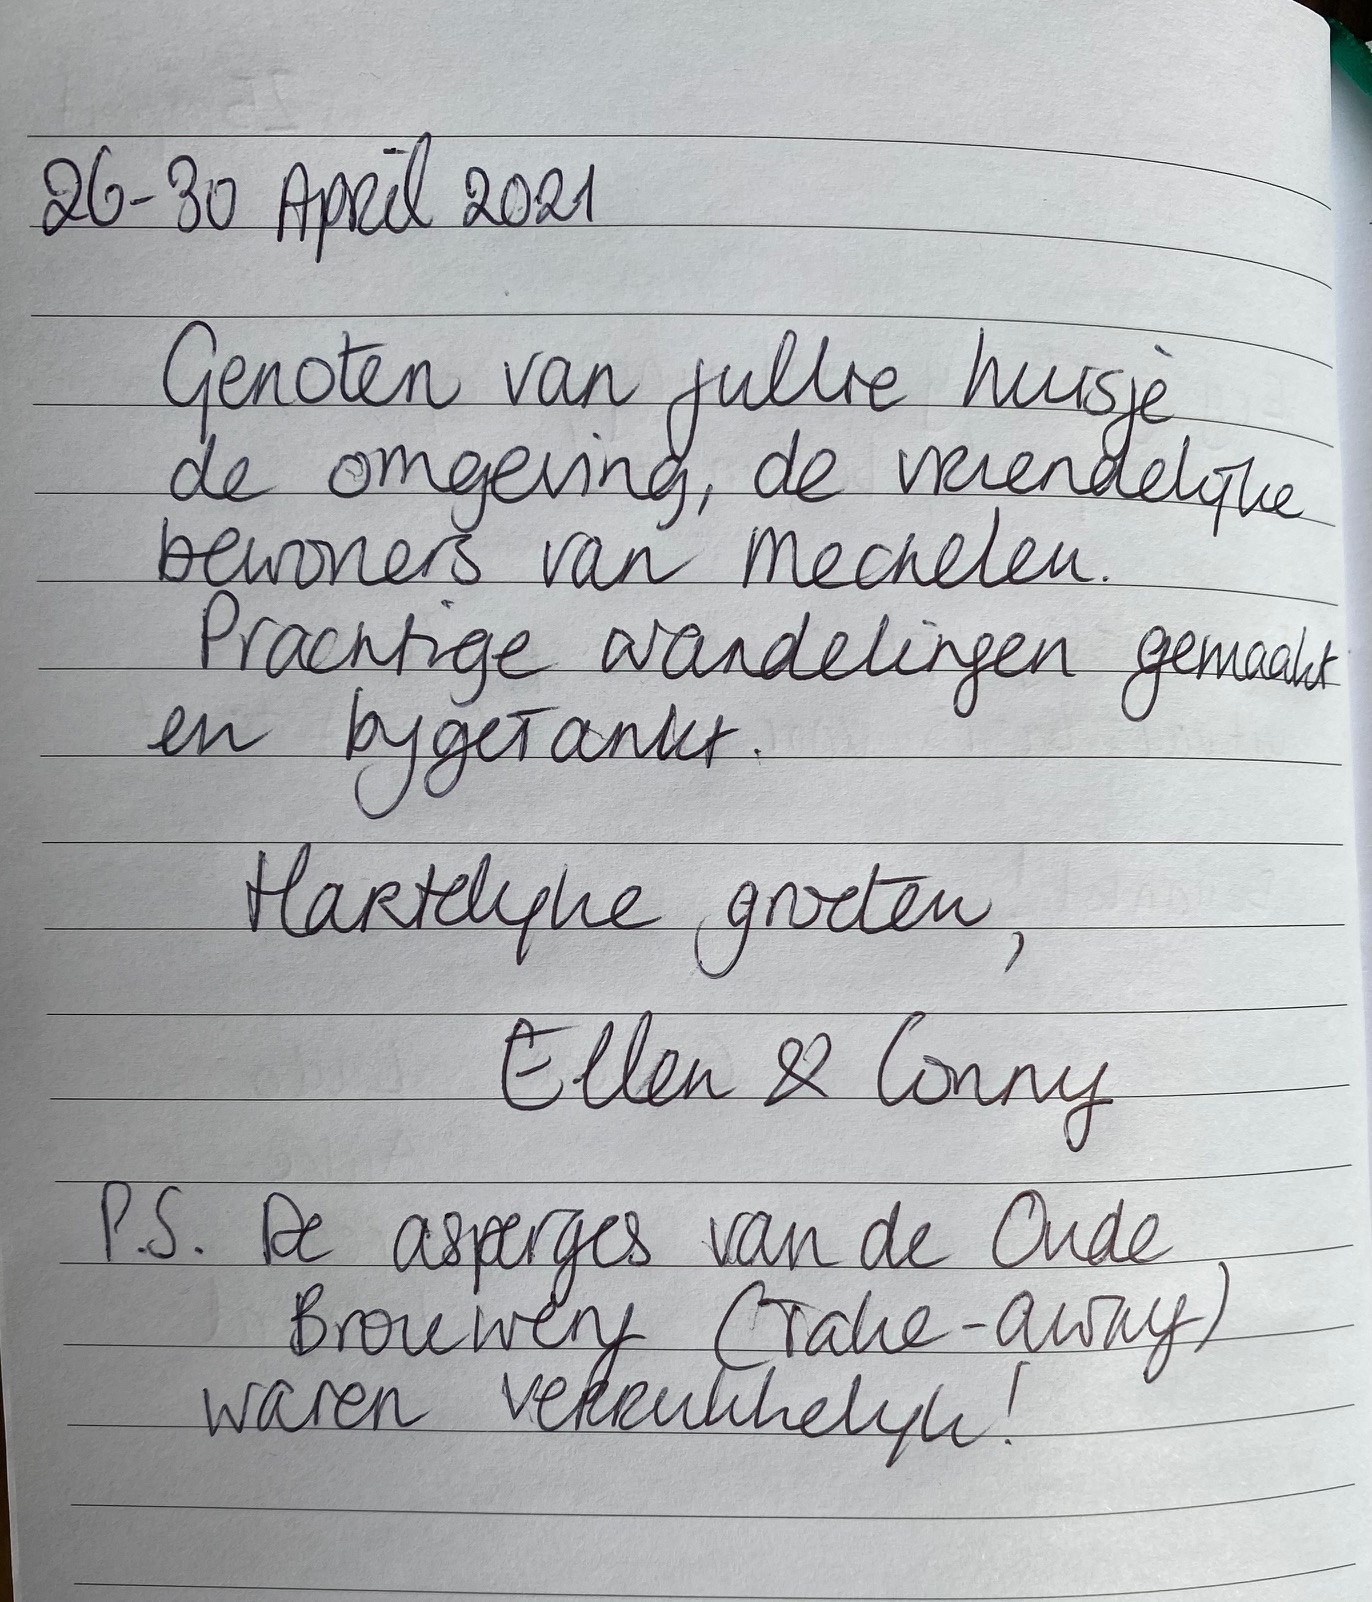 26-30 April 2021
Genoten van jullie huisje
de omgeving, de vriendelijke
bewoners van Mechelen.
Prachtige wandelingen gemaakt
en bijgetankt.
Hartelijke groeten,
Ellen & Conny
P.S. De asperges van de Oude
Brouwerij (take-away)
waren verrukkelijk!